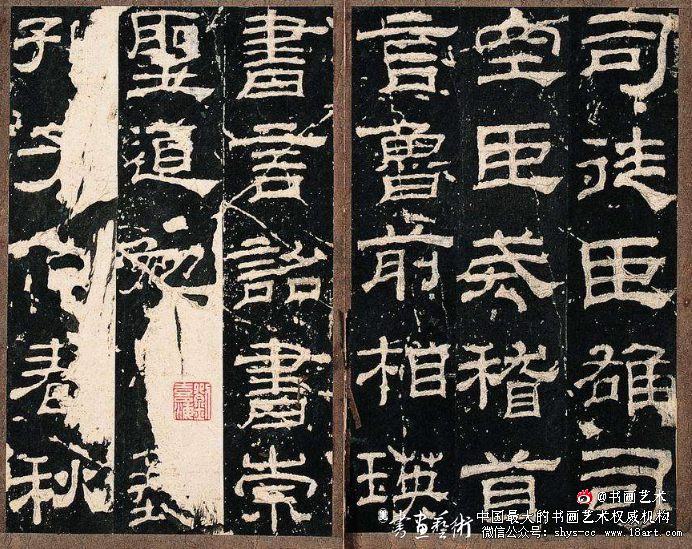 司徒臣雄司
空臣戒稽首
言魯前相瑛
書言詔書崇
聖道勉藝
孔子作春秋
書畫藝術
@书画艺术
中国最大的书画艺术权威机构
微信公众号: shys-cc www.18art.com